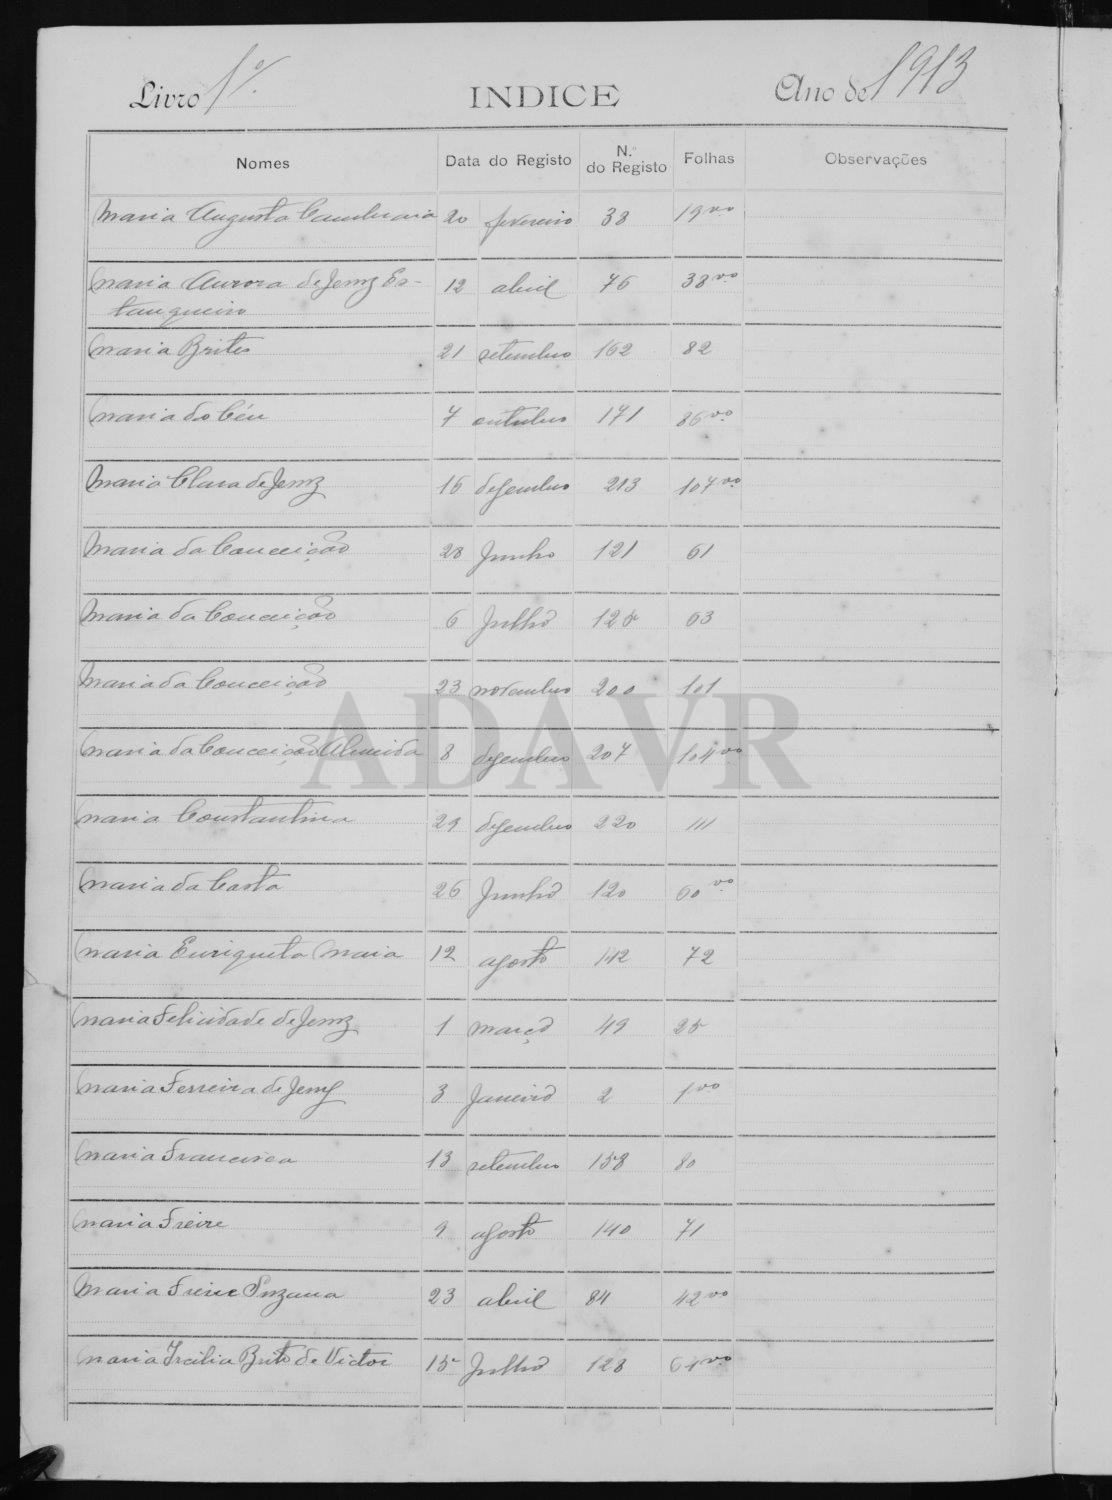 Livro 1º. INDICE Ano de 1913
Nomes Data do Registo N.º do Registo Folhas Observações
Maria Augusta Cambraia 20 fevereiro 38 19 vº
Maria Aurora de Jesus Es- 12 abril 76 38 vº
tanqueiro
Maria Brites 21 setembro 162 82
Maria do Céu 7 outubro 171 86 vº
Maria Clara de Jesus 16 dezembro 213 107 vº
Maria da Conceição 28 Junho 121 61
Maria da Conceição 6 Julho 125 63
Maria da Conceição 23 novembro 200 101
Maria da Conceição Almeida 8 dezembro 207 104 vº
Maria Constantina 29 dezembro 220 111
Maria da Costa 26 Junho 120 60 vº
Maria Euriqueta Maia 12 agosto 142 72
Maria Felicidade de Jesus 1 março 49 25
Maria Ferreira de Jesus 3 Janeiro 2 1 vº
Maria Francisca 13 setembro 158 80
Maria Freire 9 agosto 140 71
Maria Freire Suzana 23 abril 84 42 vº
Maria Brito de Victor 15 Julho 128 64 vº
ADAVR